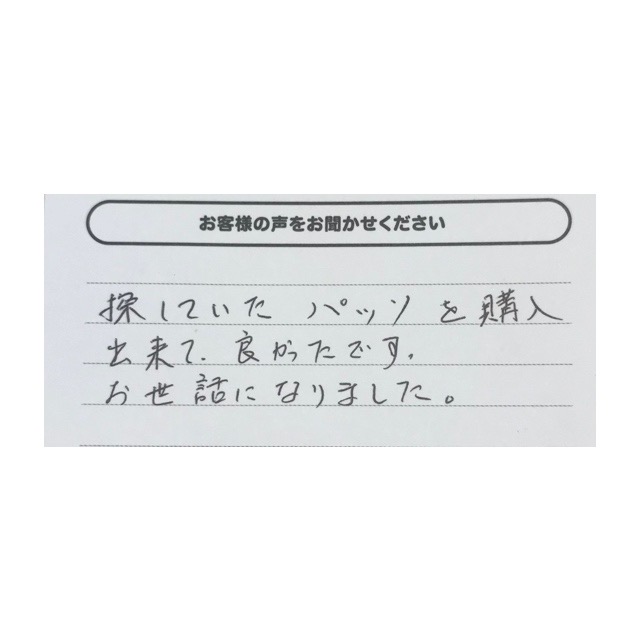 お客様の声をお聞かせください
探していた パッソを購入
出来て、良かったです。
お世話になりました。